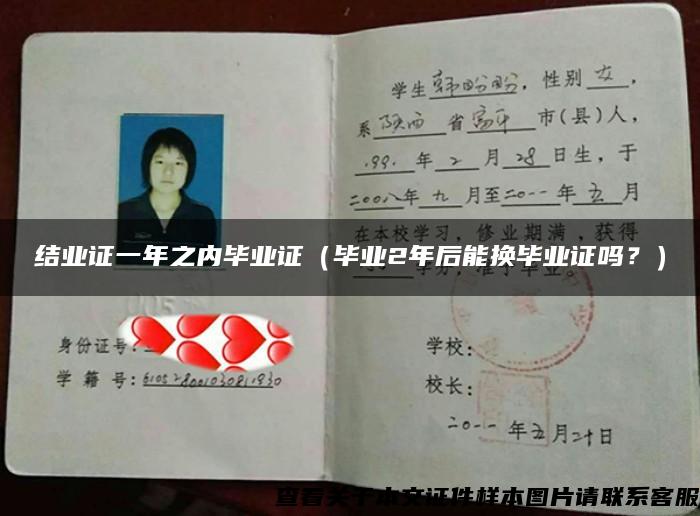 学生韩盼盼，性别女，
系陕西省富平市(县)人，
.99.年2月28日生，于
二00八年九月至二0一一年五月
在本校学习，修业期满，获得
学分，准予毕业。
结业证一年之内毕业证（毕业2年后能换毕业证吗？）
身份证号:
学籍号:
学校:
校长:
二0一一年五月二十日
查看关于本文证件样本图片请联系客服